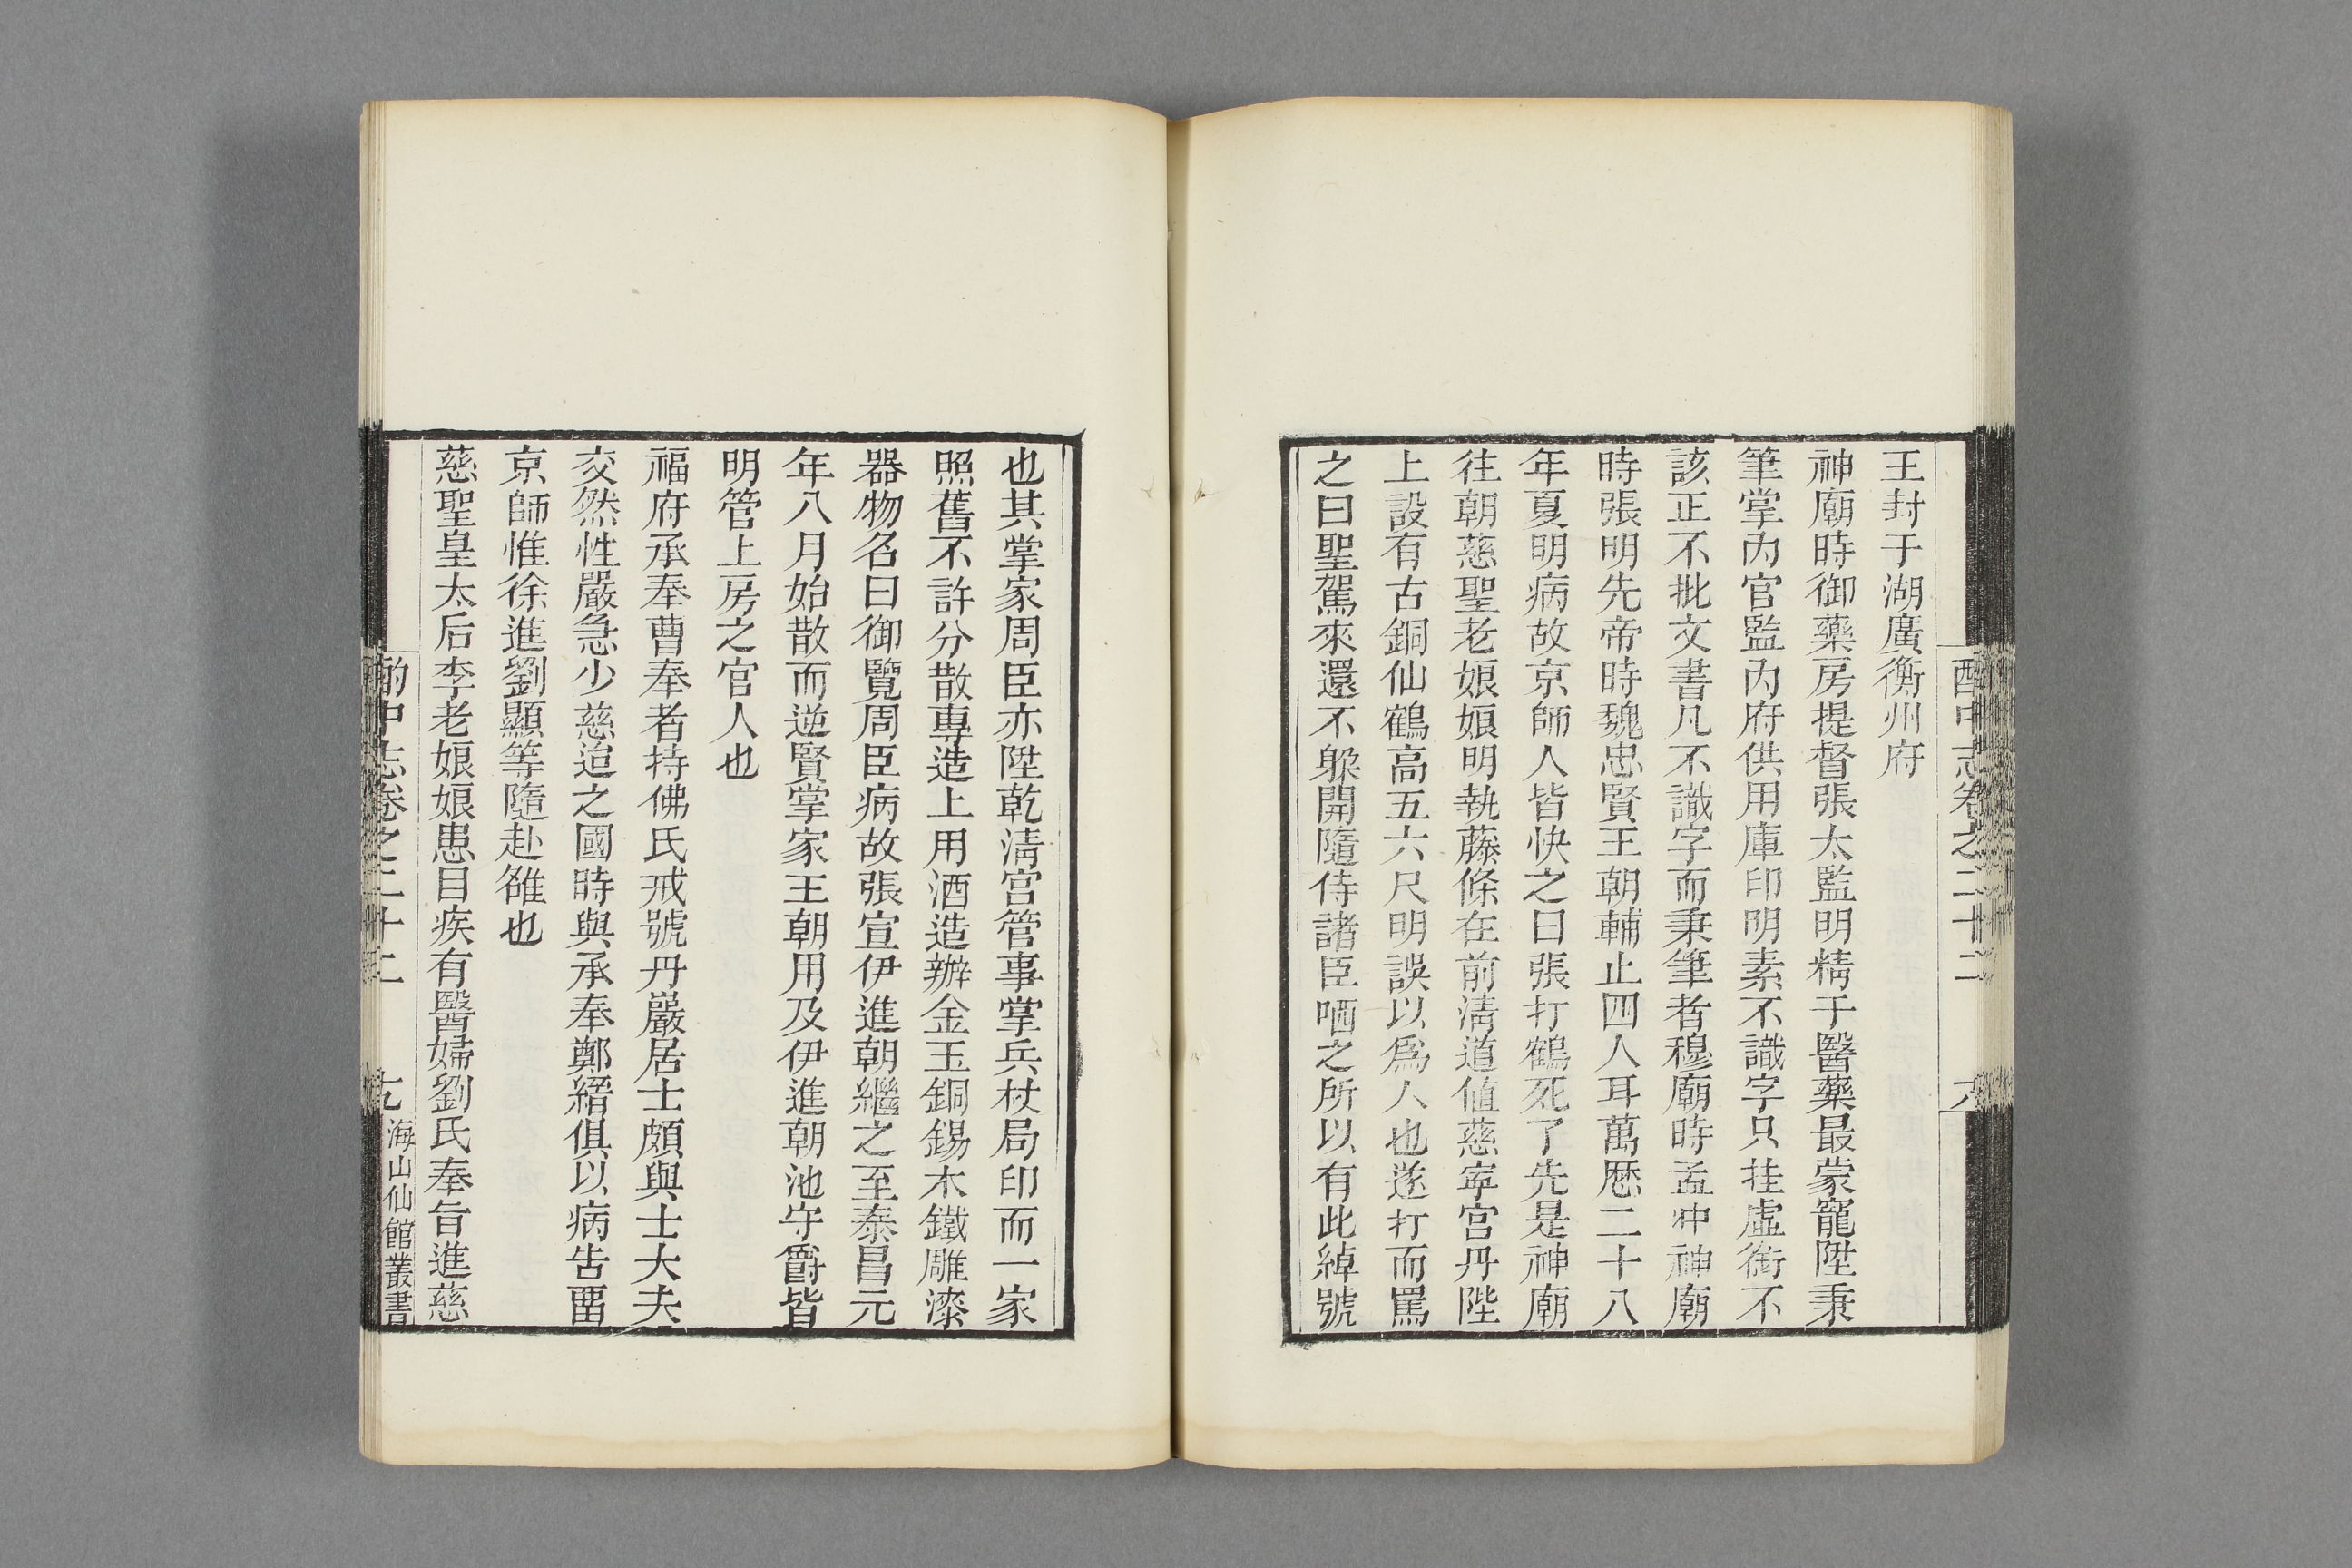 酌中志卷之二十二
六
王封于湖廣衡州府
神廟時御藥房提督張太監明精于醫藥最蒙寵陞秉
筆掌內官監內府供用庫印明素不識字只挂虛銜不
該正不批文書凡不識字而秉筆者穆廟時孟冲神廟
時張明先帝時魏忠賢王朝輔止四人耳萬厯二十八
年夏明病故京師人皆快之曰張打鶴死了先是神廟
往朝慈聖老娘娘明執藤條在前淸道値慈寧宮丹陛
上設有古銅仙鶴高五六尺明誤以爲人也遂打而罵
之曰聖駕來還不躱開隨侍諸臣哂之所以有此綽號
也其掌家周臣亦陞乾淸宮管事掌兵杖局印而一家
照舊不許分散專造上用酒造辦金玉銅錫木鐵雕漆
器物名曰御覽周臣病故張宣伊進朝繼之至泰昌元
年八月始散而逆賢掌家王朝用及伊進朝池守爵皆
明管上房之官人也
福府承奉曹奉者持佛氏戒號丹巖居士頗與士大夫
交然性嚴急少慈迨之國時與承奉鄭縉俱以病吿畱
京師惟徐進劉顯等隨赴雒也
慈聖皇太后李老娘娘患目疾有醫婦劉氏奉旨進慈
酌中志卷之二十二
七
海山仙館叢書